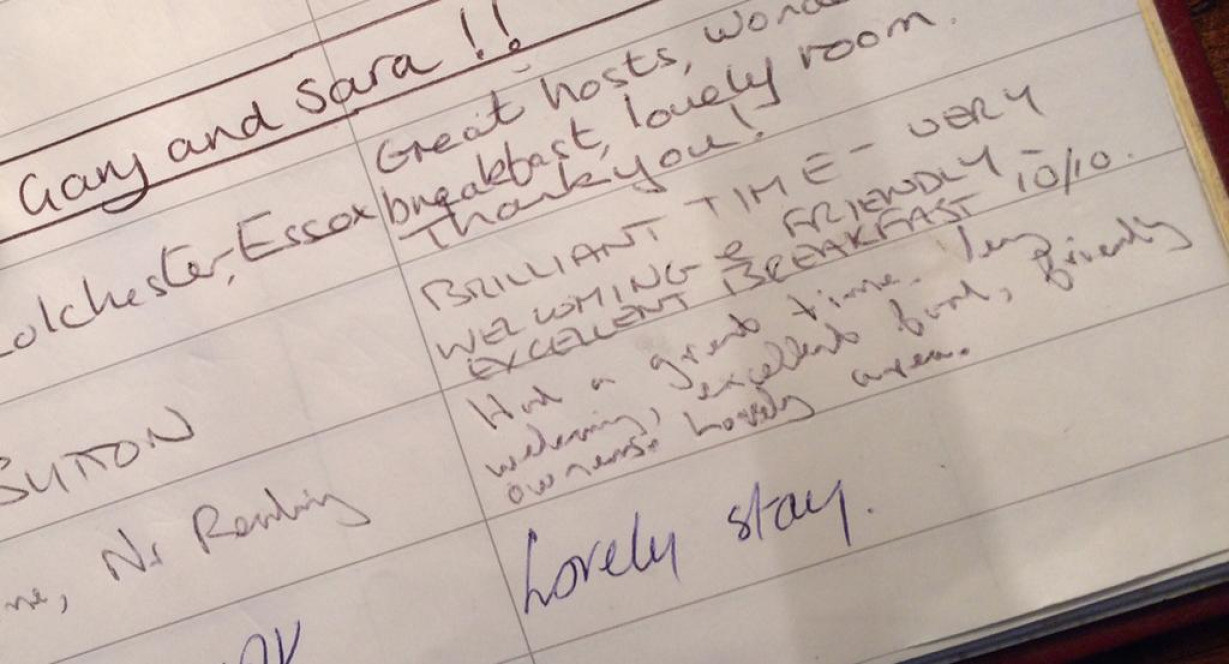 Gary and Sara !!
Great hosts,
breakfast, lovely room.
Thank you!
Colchester, Essex
BRILLIANT TIME - VERY
WELCOMING & FRIENDLY -
EXCELLENT BREAKFAST 10/10.
SUTTON
Had a great time. Very
welcoming, excellent food, friendly
owners. Lovely area.
Nr Reading
Lovely stay.